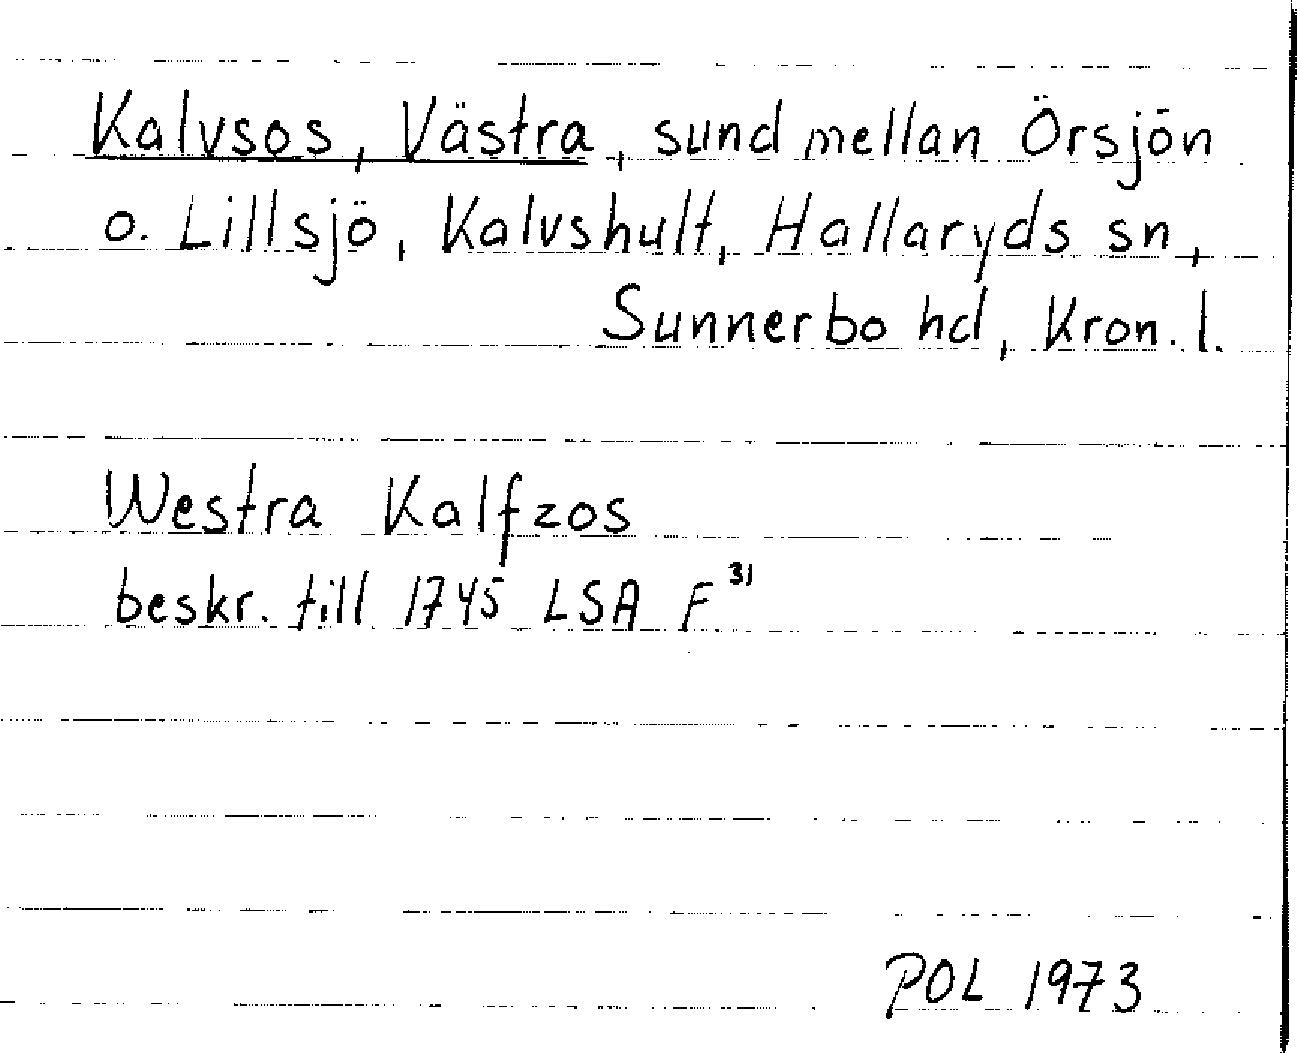 Kalvsos, Västra, sund mellan Örsjön
o. Lillsjö, Kalvshult, Hallaryds sn,
Sunnerbo hd, Kron. l.
Westra Kalfzos
beskr. till 1745 LSA F³¹
POL 1973